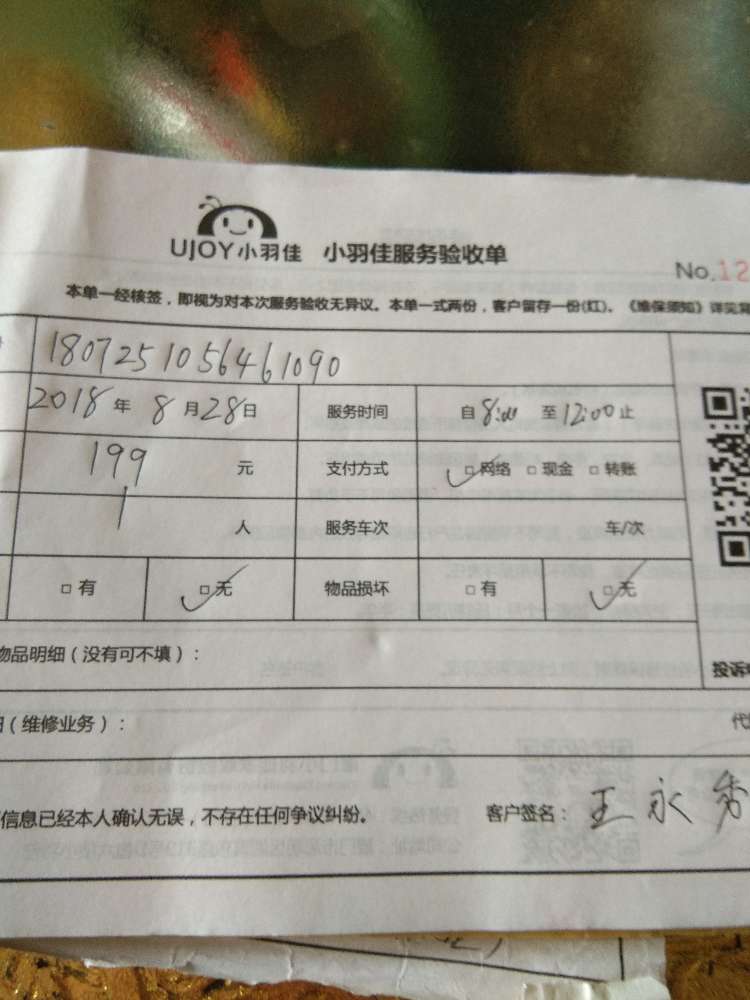 UJOY小羽佳 小羽佳服务验收单
No.12
本单一经核签，即视为对本次服务验收无异议。本单一式两份，客户留存一份(红)。《维保须知》详见背
1807251056461090
2018年8月28日 服务时间 自8:00至12:00止
199元 支付方式 ✓□网络 □现金 □转账
1人 服务车次 车/次
□有 ☑无 物品损坏 □有 ☑无
物品明细（没有可不填）：
投诉
（维修业务）：
信息已经本人确认无误，不存在任何争议纠纷。 客户签名：王永秀